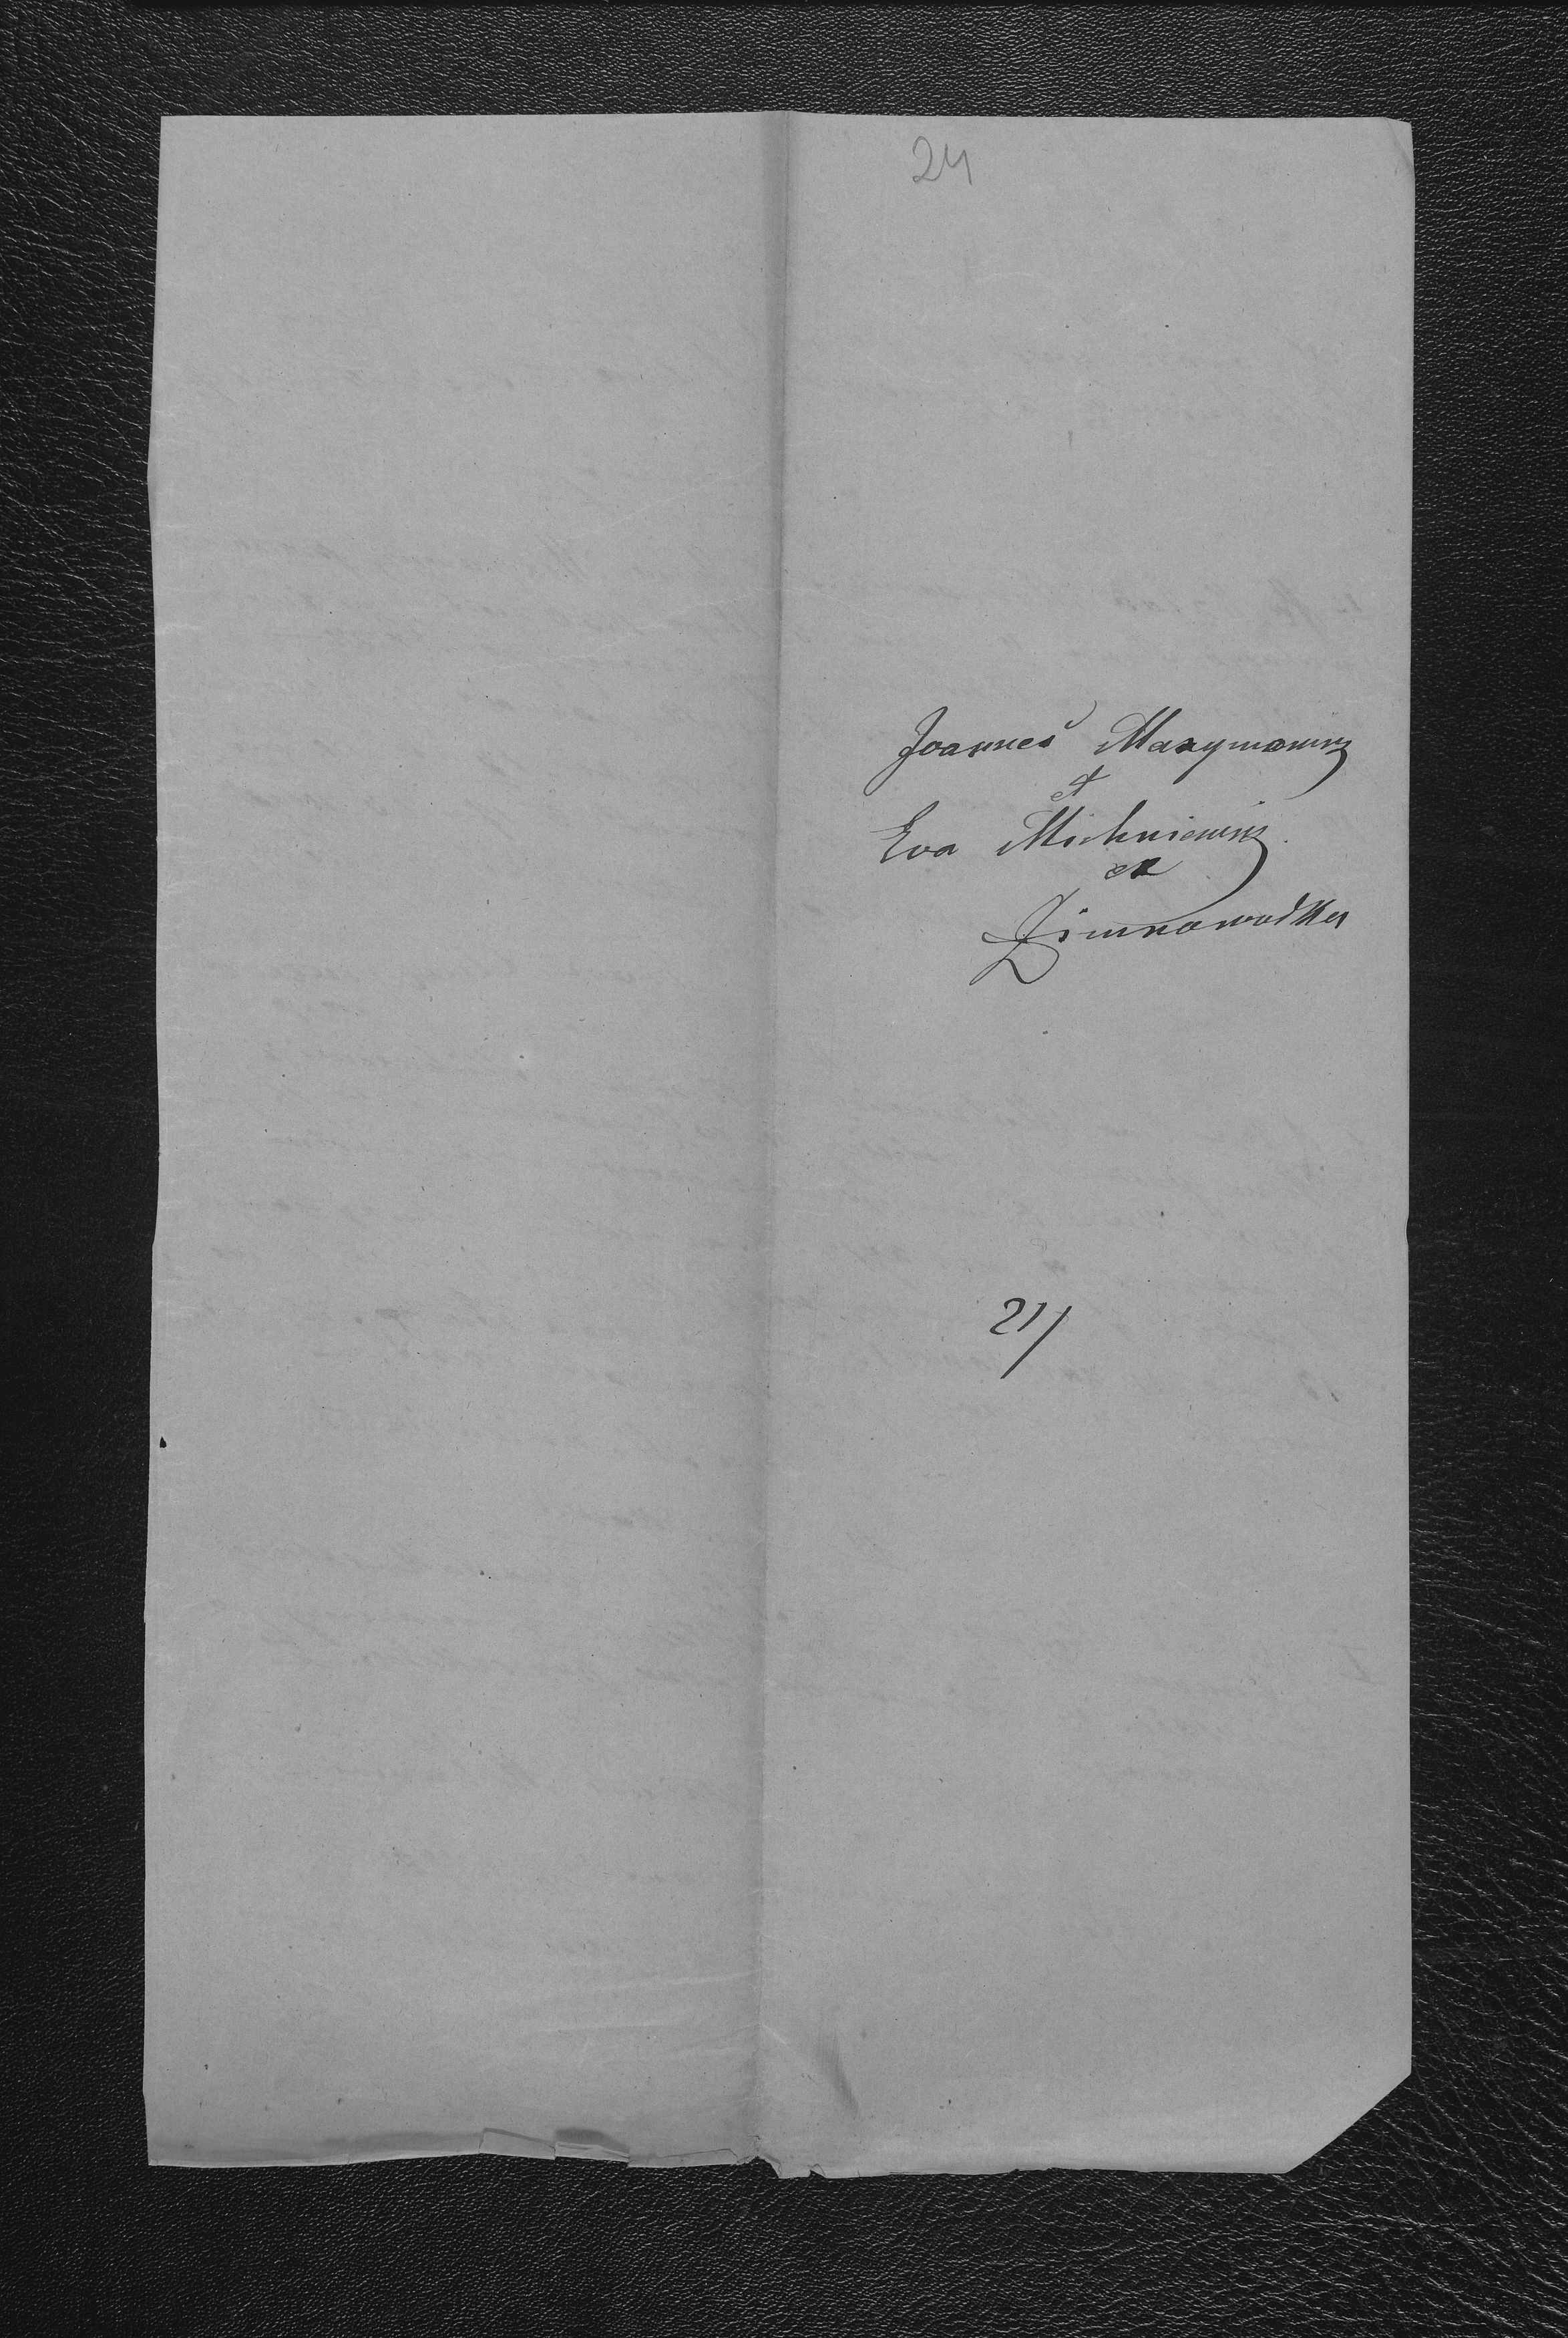 24
Joannes Maxymowicz
et
Eva Michniewicz
ex
Zimnawodka
21/